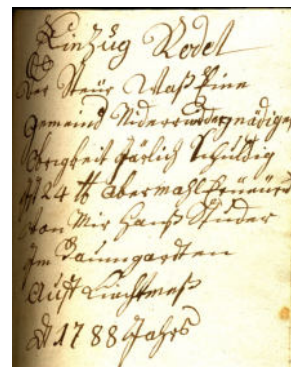 Einzug Rodel
Der Steür Waß Eine
Gemeind Nider gnädigen
Obrigkeit Järlich Schuldig
Ist 24 ℔ abermahl Erneüert
Von Mir Hanß Studer
Im Baumgardten
Auff Liechtmeß
1788 Jahrs